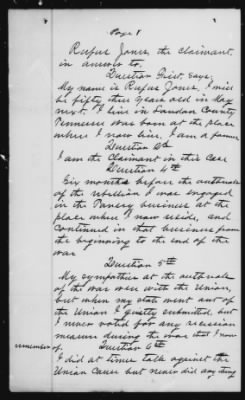 Page 1
Rufus Jones the claimant
in answer to.
Question First says.
My name is Rufus Jones, I will
be fifty three years old in May
next. I live in Loudon County
Tennessee was born at the place
where I now live. I am a farmer
Question 2d
I am the Claimant in this Case
Question 4th
Six months before the outbreak
of the rebellion I was engaged
in the Tanery business at the
place where I now reside, and
Continued in that business from
the beginning to the end of the
war
Question 5th
My sympathies at the outbreak
of the war were with the Union,
but when my state went out of
the Union I quietly submitted, but
I never voted for any secession
measure during the war that I now
remember of. Question 6th
I did at times talk against the
Union Cause but never did any thing